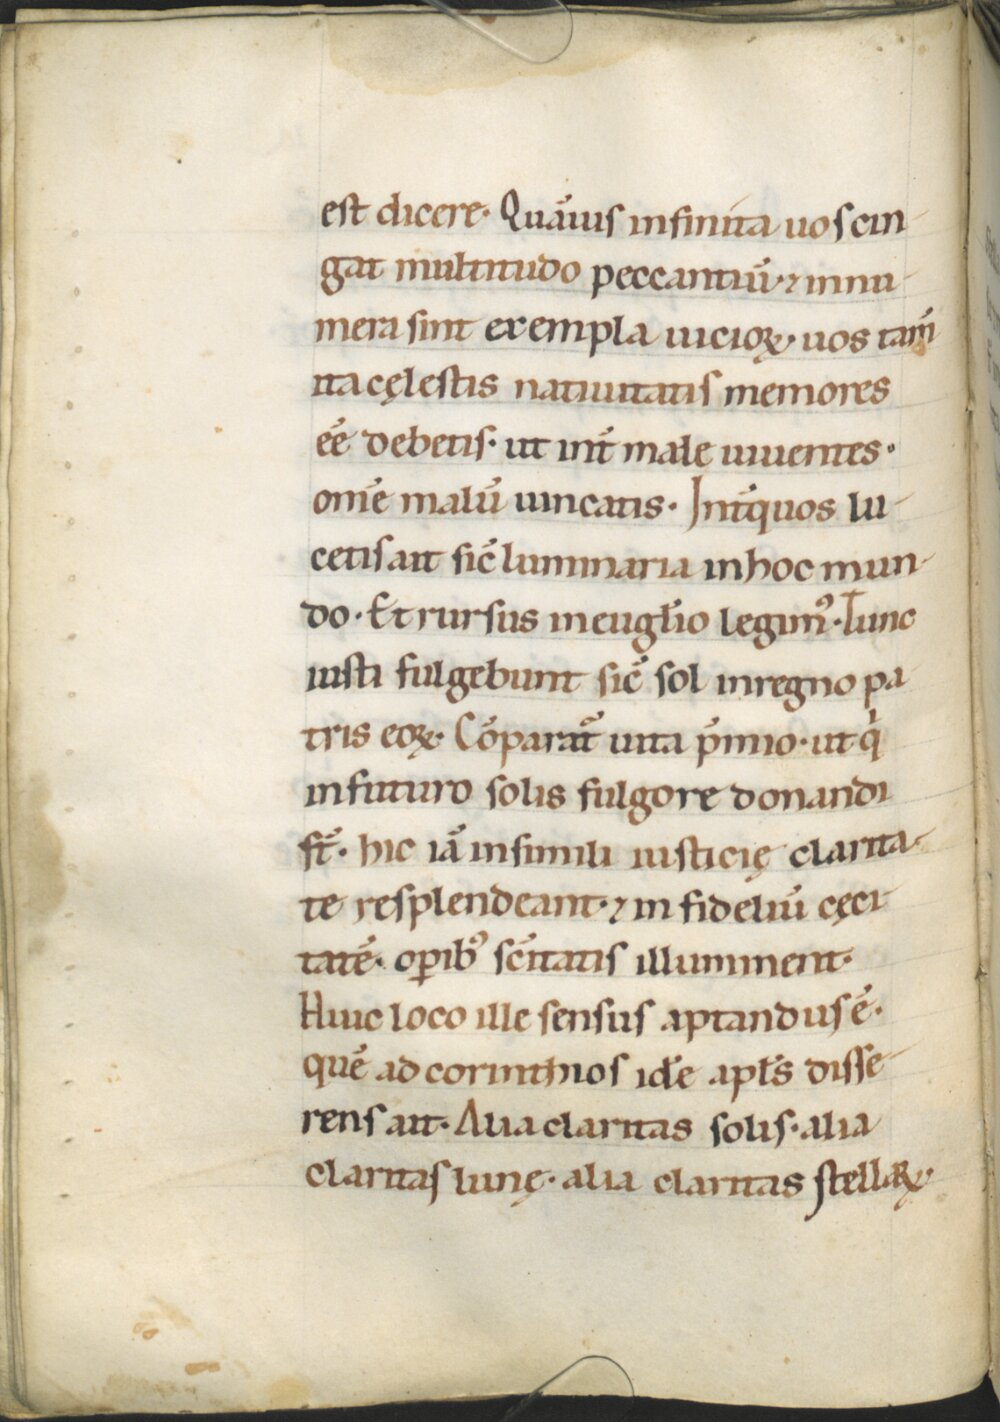 est dicere. Quāuis infinita uos cin
gat multitudo peccantiū. ⁊ innu
mera sint exempla uicioꝝ. uos tam̄
ita cęlestis natiuitatis memores
eē debetis. ut int̄ male uiuentes.
om̄e malū uincatis. Int̄ quos lu
cetis ait sic̄ luminaria in hoc mun
do. Et rursus in euḡlio legim᷒. Tunc
iusti fulgebunt sic̄ sol in regno pa
tris eoꝝ. Cōparat᷑ uita p̄mio. ut qͥ
in futuro solis fulgore donandi
st̄. hic iā in simili iusticię clarita
te resplendeant. ⁊ infideliū cęci
tatē. oꝑib᷒ sc̄itatis illuminent.
Huic loco ille sensus aptandus ē.
quē ad corinthios idē apl̄s disse
rens ait. Alia claritas solis. alia
claritas lunę. alia claritas stellaꝝ.